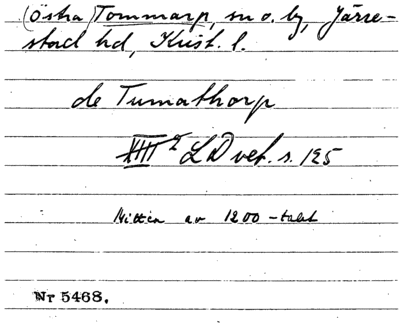 (Östra) Tommarp, sn o. by, Järre-
stad hd, Krist. l.
de Tumathorp
XIII 2 LDvet. s. 125
Mitten av 1200-talet
Nr 5468.